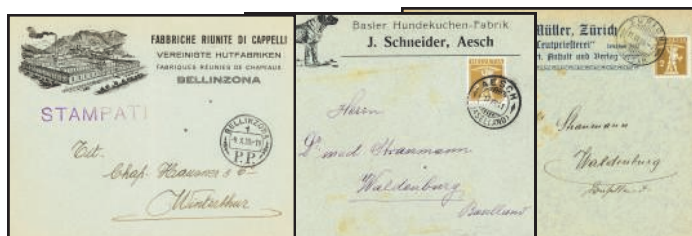 FABBRICHE RIUNITE DI CAPPELLI
VEREINIGTE HUTFABRIKEN
FABRIQUES RÉUNIES DE CHAPEAUX
BELLINZONA
STAMPATI
BELLINZONA
1
P.P.
Tit.
Chap.
Winterthur
Basler Hundekuchen-Fabrik
J. Schneider, Aesch
AESCH
(BASELLAND)
Herrn
Dr. med. Straumann
Waldenburg
Baselland
Müller, Zürich
"Leutpriesterei"
Anstalt und Verlag
ZÜRICH
2
Straumann
Waldenburg